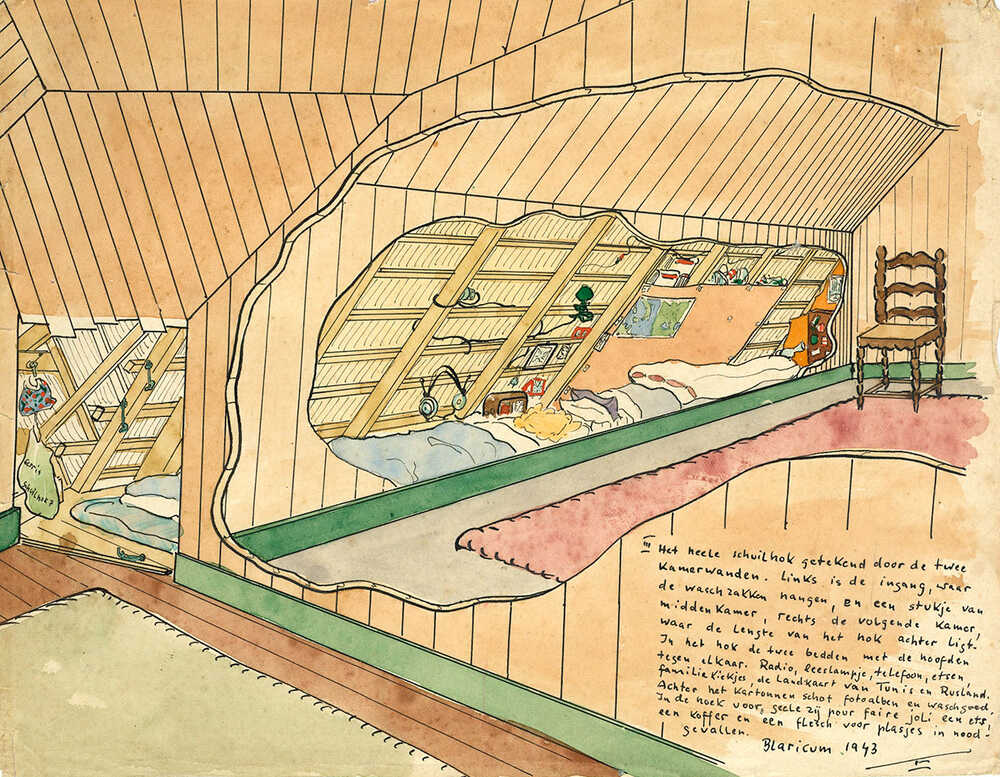 Kerri's
Schilhoek?
III Het heele schuilhok getekend door de twee
Kamerwanden. Links is de ingang, waar
de waschzakken hangen, en een stukje van
midden Kamer, rechts de volgende Kamer,
waar de lengte van het hok achter ligt.
In het hok de twee bedden met de hoofden
tegen elkaar. Radio, leeslampje, telefoon, etsen,
familie Kiekjes, de Landkaart van Tunis en Rusland.
Achter het Kartonnen schot fotoalben en waschgoed.
In de hoek voor, geele zij pour faire joli een ets,
een koffer en een flesch voor plasjes in nood-
gevallen.
Blaricum 1943